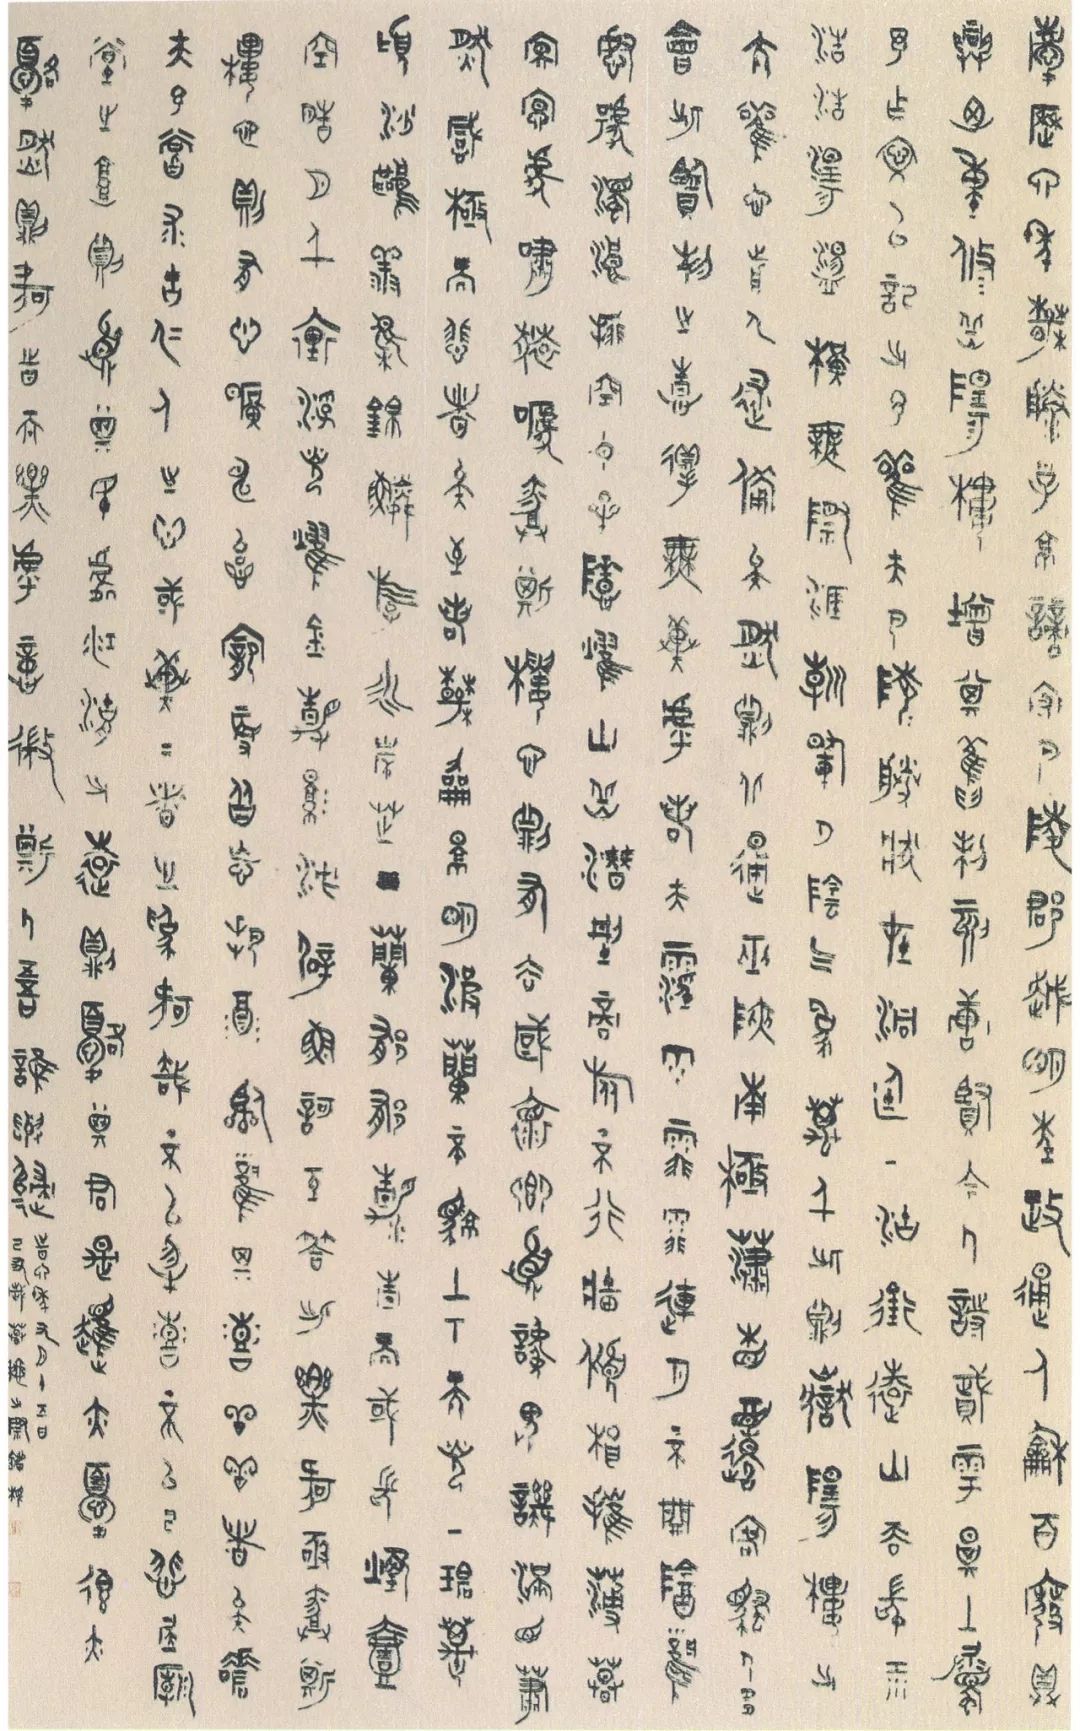 慶曆四年春滕子京謫守巴陵郡越明年政通人和百廢具
興乃重修岳陽樓增其舊制刻唐賢今人詩賦于其上屬
予作文以記之予觀夫巴陵勝狀在洞庭一湖銜遠山吞長江
浩浩湯湯橫無際涯朝暉夕陰氣象萬千此則岳陽樓之
大觀也前人述備矣然則北通巫峽南極瀟湘遷客騷人多
會此覽物之情得無異乎若夫霪雨霏霏連月不開陰風
怒號濁浪排空日星隱曜山岳潛形商旅不行檣傾楫摧薄暮
冥冥虎嘯猿啼登斯樓也則有去國懷鄉憂讒畏譏滿目蕭
然感極而悲者矣至若春和景明波瀾不驚上下天光一碧萬
頃沙鷗翔集錦鱗游泳岸芷汀蘭郁郁青青而或長煙一
空皓月千里浮光躍金靜影沉璧漁歌互答此樂何極登斯
樓也則有心曠神怡寵辱偕忘把酒臨風其喜洋洋者矣嗟
夫予嘗求古仁人之心或異二者之為何哉不以物喜不以己悲居廟
堂之高則憂其民處江湖之遠則憂其君是進亦憂退亦
憂然則何時而樂乎噫微斯人吾誰與歸